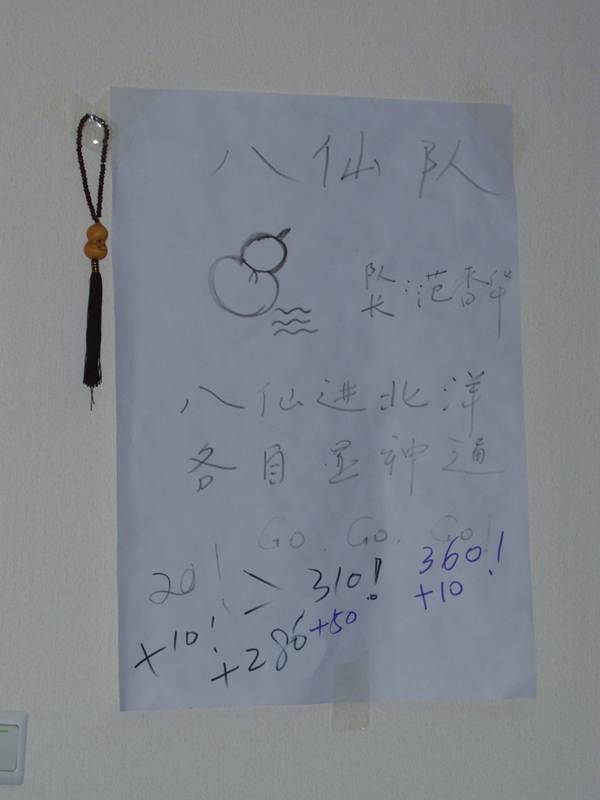 八仙队
队长:范香华
八仙进北洋
各自显神通
Go. Go. Go!
20! 310! 360!
+10! +280 +50 +10